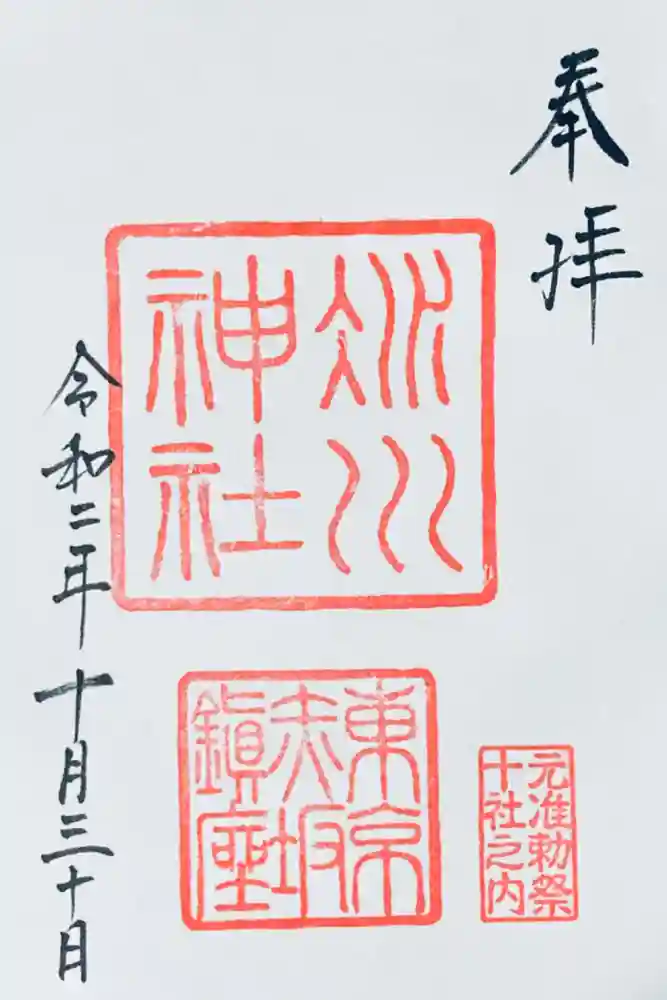 奉拝
氷川
神社
東京
赤坂
鎮座
元准勅祭
十社之内
令和二年十月三十日